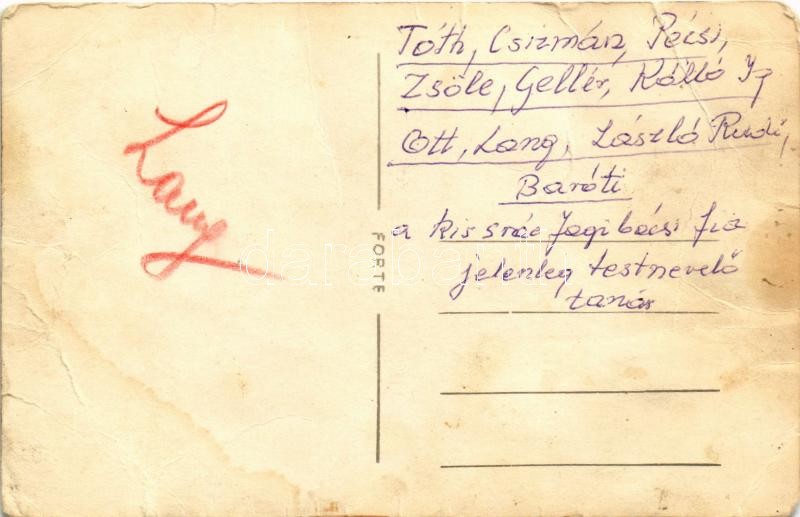 Lang
FORTE
Tóth, Csizmán, Pécsi,
Zsöle, Gellér, Kálló Iz
Ott, Lang, László Rudi,
Baróti
a kis srác Jagi bácsi fia
jelenleg testnevelő
tanár